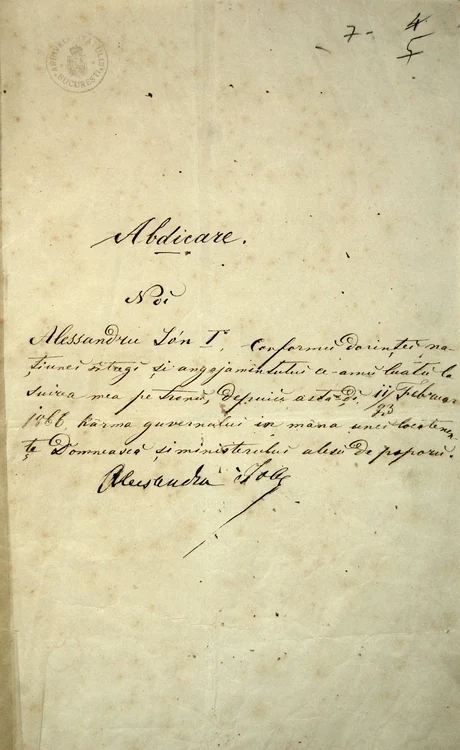 7-
4
5
BUCURESTI
Abdicare.
Noi
Alessandru Ión I, Conformu dorinței na-
țiunei întregi și angajamentului ce-amu luatu la
suirea mea pe tronu, depuiu astădi 11/23 Februar
1866 kârma guvernului in mâna unei locotenen-
țe Domnească și ministerului alesu de poporu.